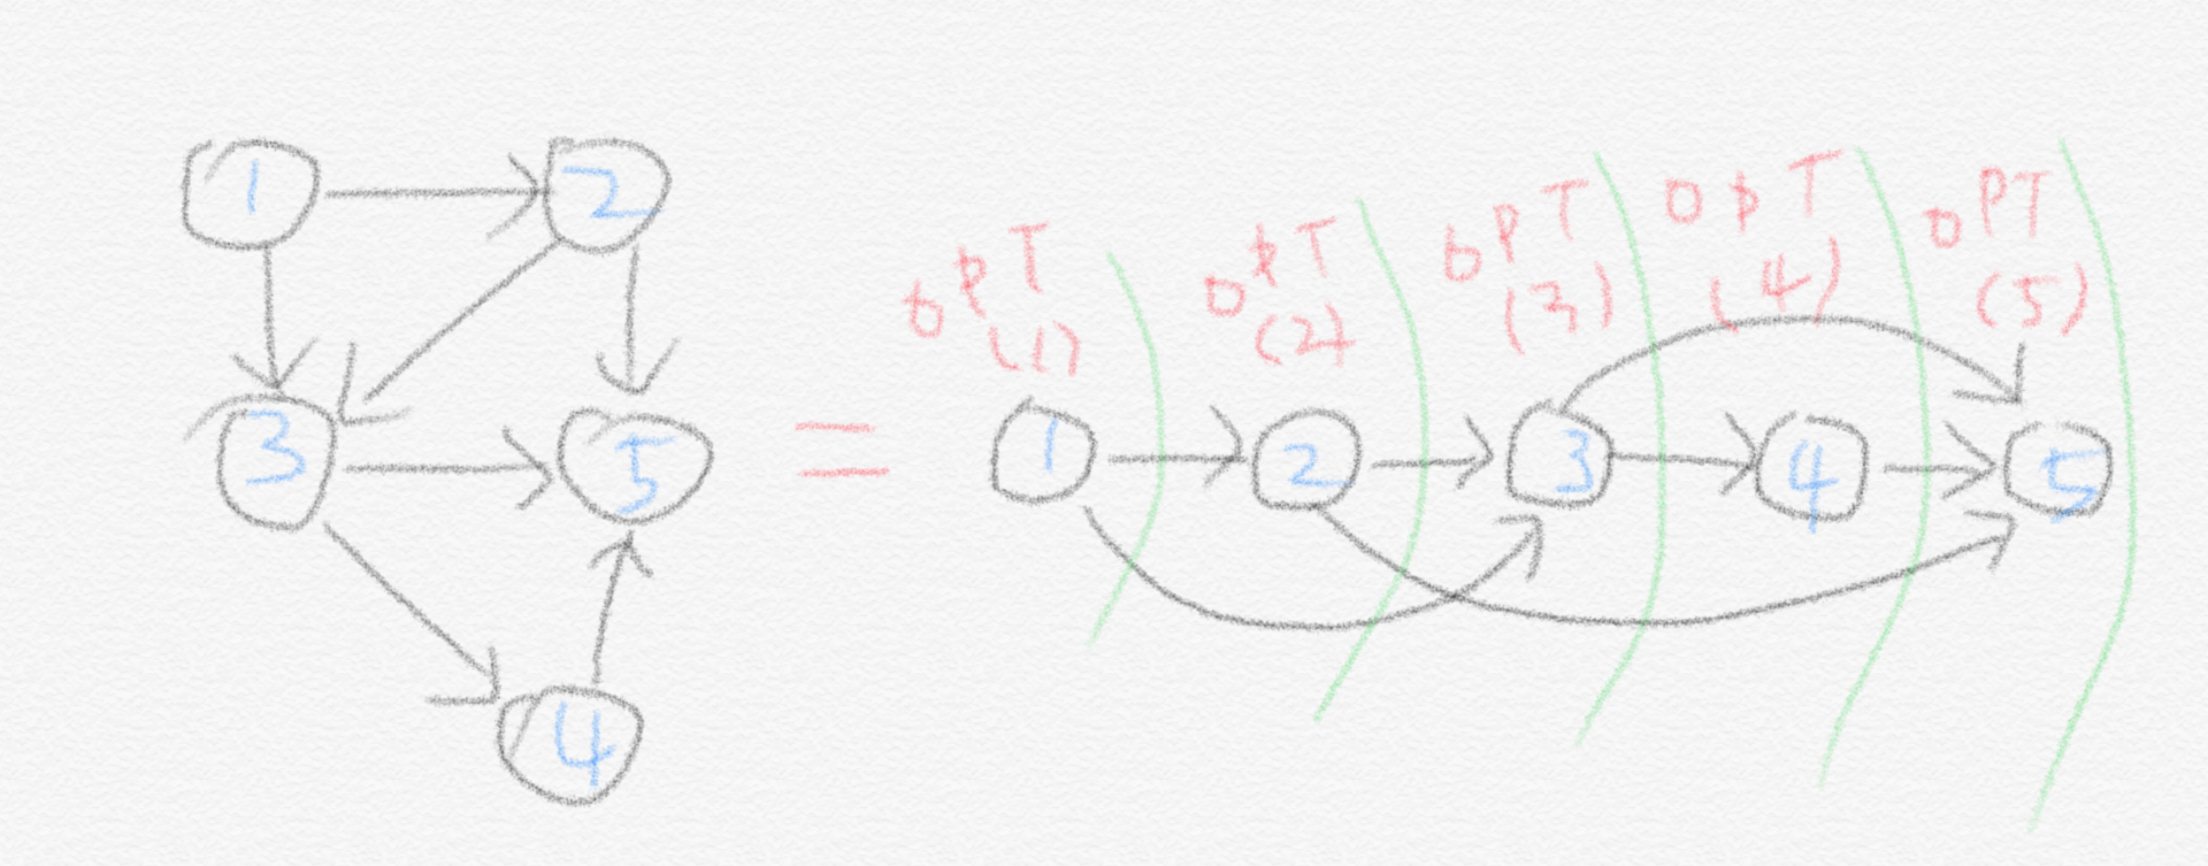 1
2
3
5
4
=
OPT (1)
OPT (2)
OPT (3)
OPT (4)
OPT (5)
1
2
3
4
5